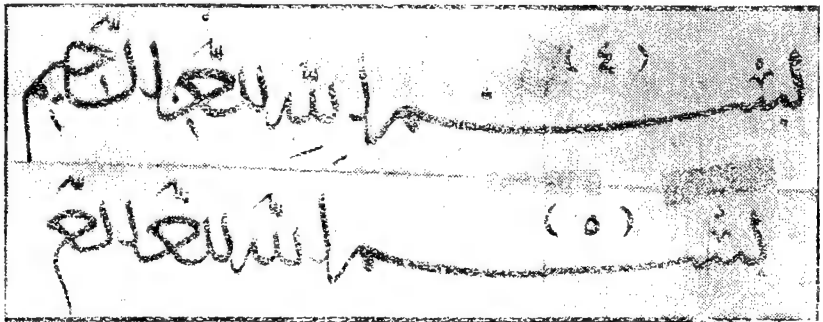 (٤) بسم الله الرحمن الرحيم
(٥) بسم الله الرحمن